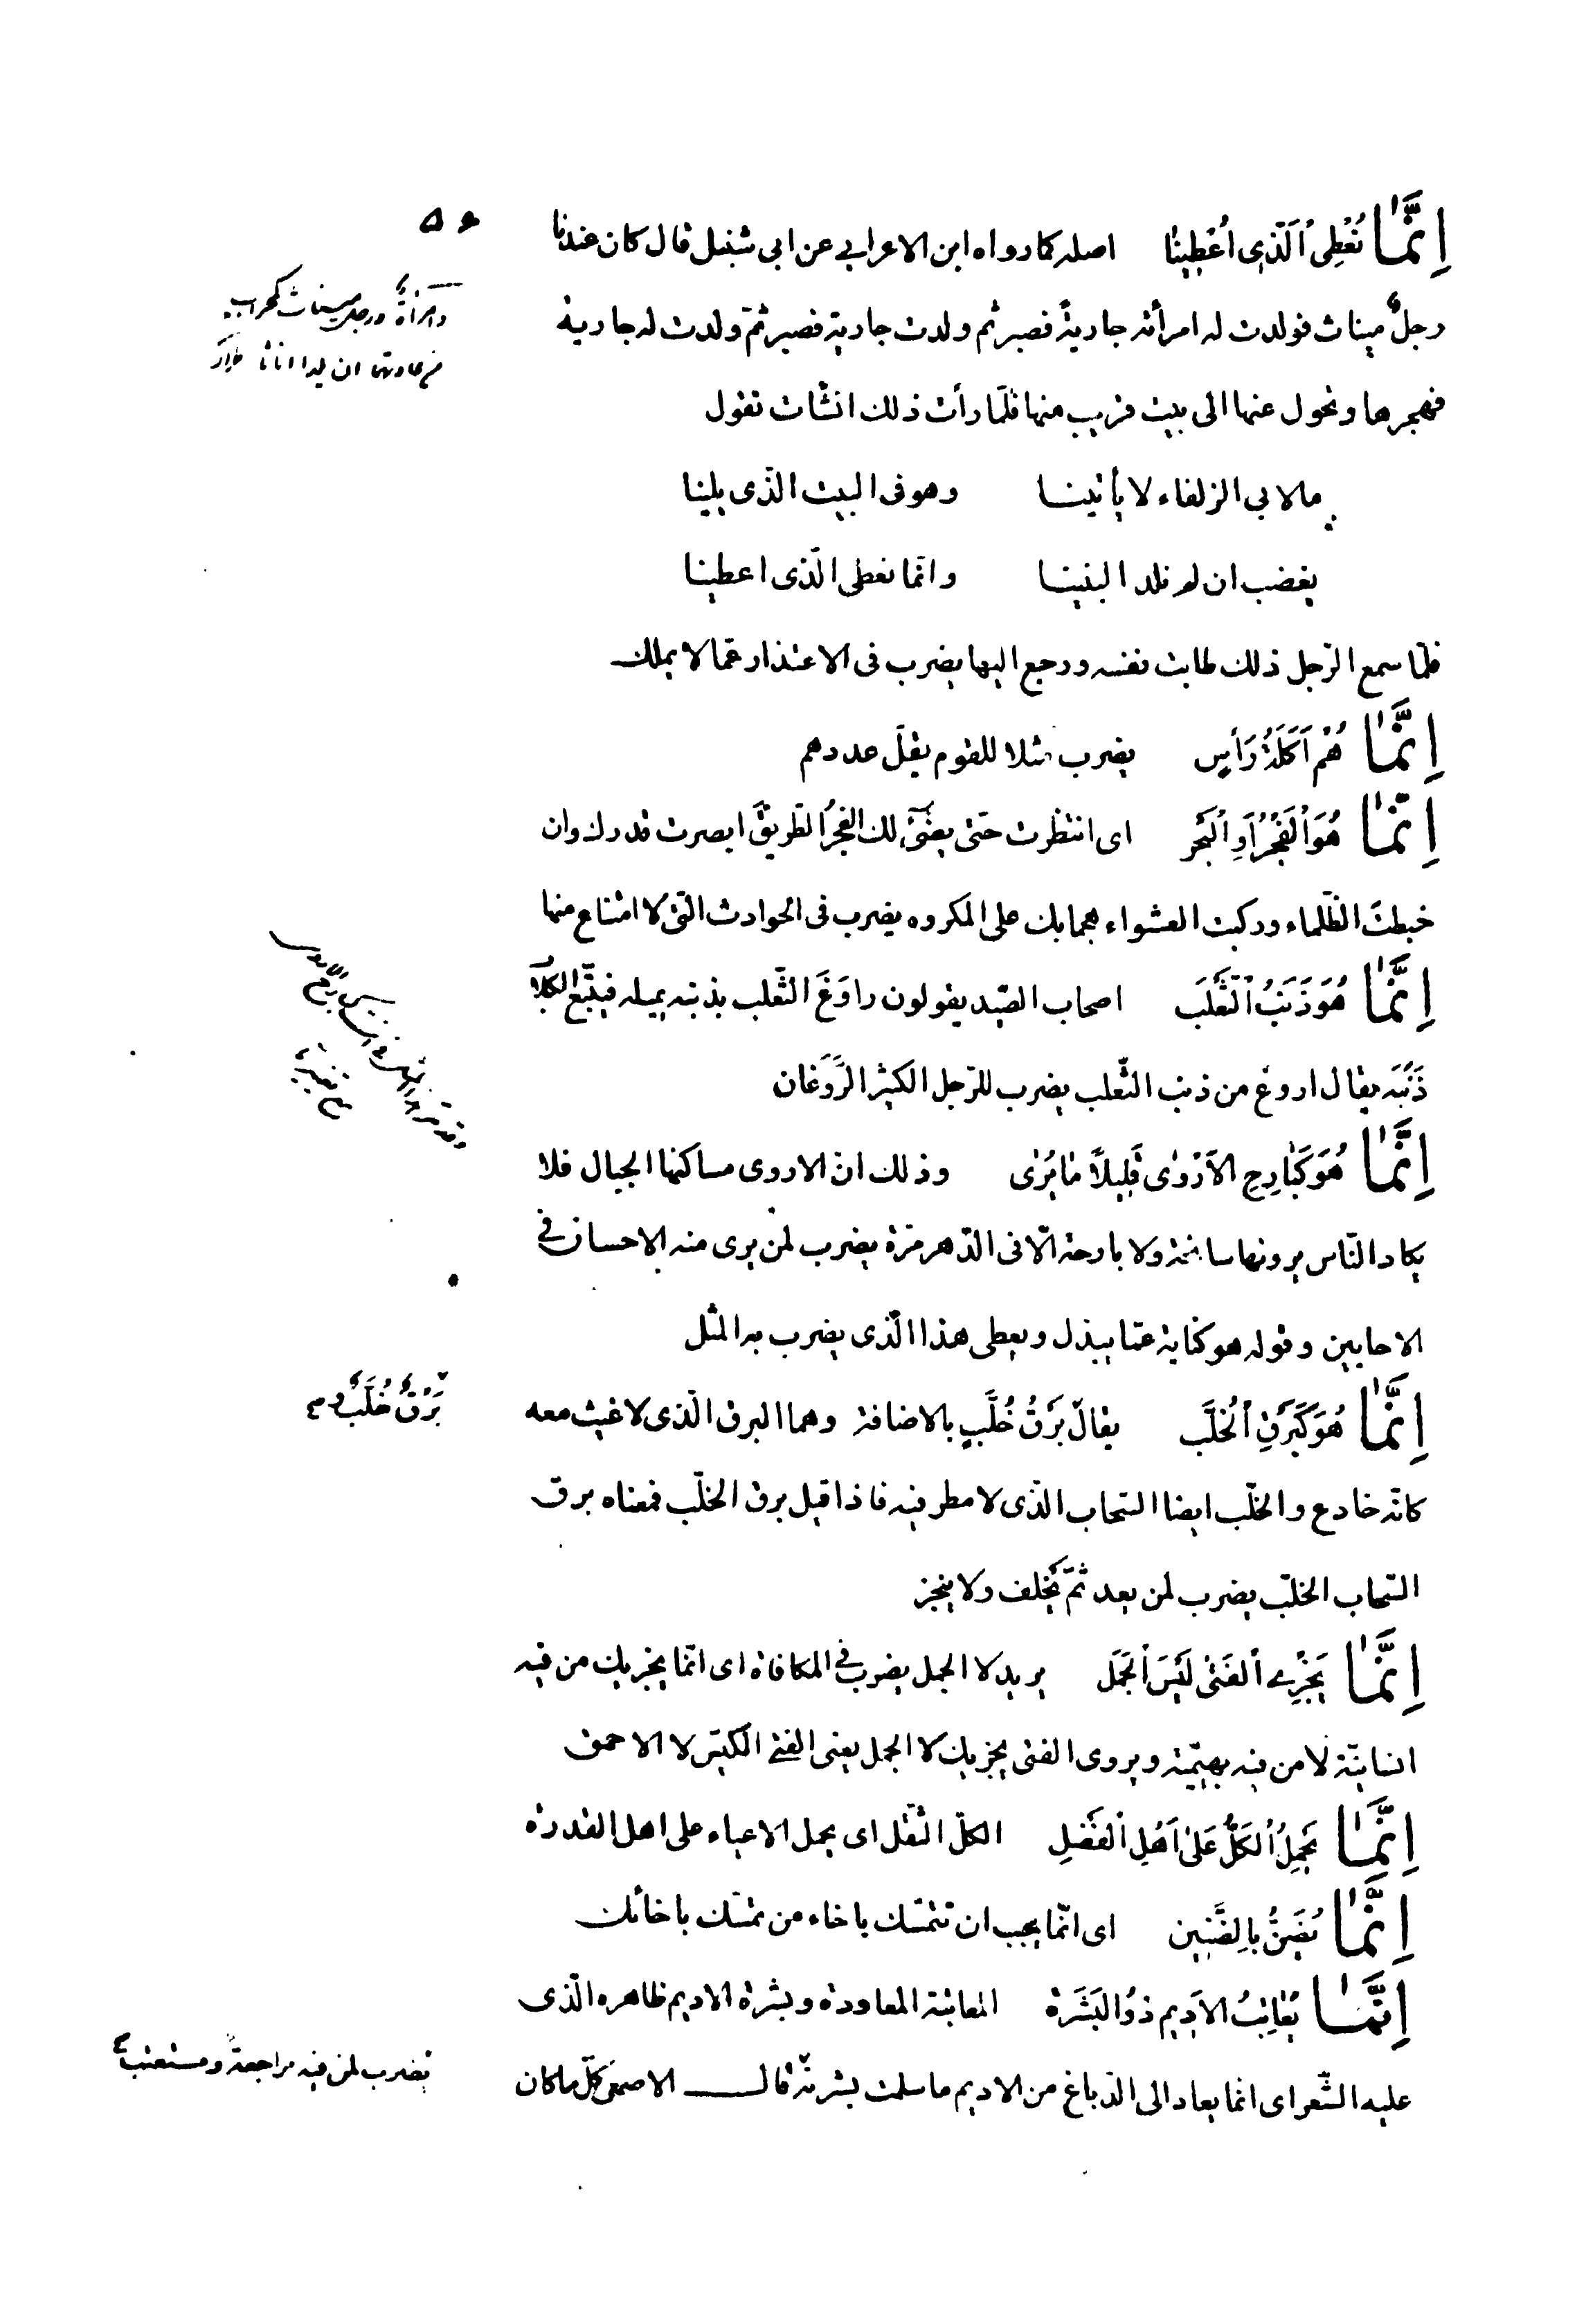 ۵۶
اِنَّمٰا نُعْطِی ٱلَّذِی اُعْطِینٰا اصله کما رواه ابن الاعرابي عن ابی شنبل قال کان عندنا
رجلٌ میناث فولدت له امرأته جاریةً فصبر ثم ولدت جاریة فصبر ثمّ ولدت له جاریة
فهجرها و تحول عنها الی بیت قریب منها فلمّا رأت ذلك انشأت تقول
مالابی الزلفاء لا یأتینا وهو فی البیت الّذی یلینا
یغضب ان لم نلد البنینا وانّما نعطی الّذی اعطینا
فلمّا سمع الرّجل ذلك طابت نفسه ورجع الیها یضرب فی الاعتذار عمّا لا یملك
اِنَّمٰا هُمْ اَکَلَةُ رَأسٍ یضرب مثلا للقوم یقلّ عددهم
اِنّمٰا هُوَ ٱلْفَجْرُ اَوِ ٱلْبَحْر ای انتظرت حتّی یضیٔ لك الفجرُ الطریقَ ابصرت قدرك وان
خبطتَ الظّلماء ورکبت العشواء هجما بك علی المکروه یضرب فی الحوادث الّتی لا امتناع منها
اِنَّمٰا هُوَ ذَنَبُ ٱلثَّعْلَب اصحاب الصّید یقولون راوَغَ الثّعلب بذنبه یمیله فیتّبع الکلاب
ذَنَبَه یقال اروغ من ذنب الثّعلب یضرب للرّجل الکثیر الرَّوَغان
اِنَّمٰا هُوَ کَبٰارِحِ الاَرْوٰی قَلِیلاً مٰا یُرٰی وذلك انّ الاروی مساکنها الجبال فلا
یکاد النّاس یرونها سانحة ولا بارحة الّا فی الدّهر مرّة یضرب لمن یری منه الاحسان فی
الاحایین وقوله هو کنایة عمّا یبذل ویعطی هذا الّذی یضرب به المثل
اِنَّمٰا هُوَ کَبَرْقِ ٱلْخُلَّب یقال بَرْقُ خُلَّبٍ بالاضافة وهما البرق الّذی لا غیث معه
کانّه خادع والخلّب ایضا السّحاب الّذی لا مطر فیه فاذا قیل برق الخلّب فمعناه برق
السّحاب الخلّب یضرب لمن یعد ثمّ یُخلف ولا ینجز
اِنَّمٰا یَجْزِي ٱلفَتٰی لَیْسَ ٱلجَمَل یرید لا الجمل یضرب فی المکافاة ای انّما یجزیك من فیه
انسانیّة لا من فیه بهیمیّة ویروی الفتی یجزیك لا الجمل یعنی الفتی الکیّس لا الاحمق
اِنَّمٰا یَحْمِلُ ٱلکَلُّ عَلیٰ اَهْلِ ٱلفَضْلِ الکلّ الثّقل ای یحمل الاعباء علی اهل القدرة
اِنَّمٰا یُضَنُّ بِالضَّنِین ای انّما یجب ان تتمسّك باخاء من تمسّك باخائك
اِنَّمٰا یُعٰاتَبُ الاَدِیم ذُو البَشَرَة المعاتبة المعاودة وبشرة الادیم ظاهره الّذی
علیه الشّعر ای انّما یعاد الی الدّباغ من الادیم ما سلمت بشرتّه قال الاصمعی کلّ ما کان
وامرأةٌ ورجل میناث کمحراب
من عادتهما ان یلدا اناثا
بَرْقٌ خُلَّبٌ
یضرب لمن فیه مراجعةٌ ومستعتب